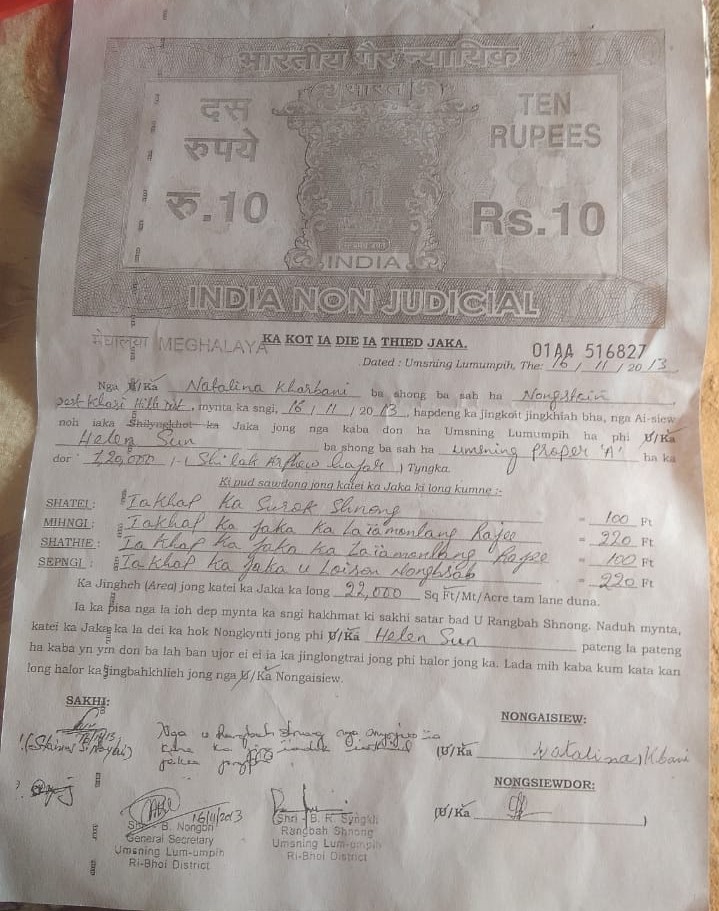 भारतीय गैर न्यायिक
भारत
दस
रुपये
रु.10
TEN
RUPEES
Rs.10
INDIA
INDIA NON JUDICIAL
मेघालय MEGHALAYA
KA KOT IA DIE IA THIED JAKA.
01AA 516827
Dated : Umsning Lumumpih, The: 16 / 11 / 2013
Nga U/Ka Natalina Kharbani ba shong ba sah ha Nongstoin
West Khasi Hills , mynta ka sngi, 16 / 11 / 2013, hapdeng ka jingkoit jingkhiah bha, nga Ai-siew
noh iaka Shilyngkhot ka Jaka jong nga kaba don ha Umsning Lumumpih ha phi U/Ka
Helen Sun ba shong ba sah ha Umsning Proper 'A' ha ka
dor 1,20,000 /- (Shi lak Arphew hajar) Tyngka.
Ki pud sawdong jong katei ka Jaka ki long kumne :-
SHATEI : Iakhap Ka Surok Shnong = 100 Ft
MIHNGI : Iakhap Ka Jaka Ka Laiamonlang Rajee = 220 Ft
SHATHIE : Iakhap Ka Jaka Ka Laiamonlang Rajee = 100 Ft
SEPNGI : Iakhap Ka Jaka u Loison Nonghsab = 220 Ft
Ka Jingheh (Area) jong katei ka Jaka ka long 22,000 Sq Ft/Mt/Acre tam lane duna.
Ia ka pisa nga la ioh dep mynta ka sngi hakhmat ki sakhi satar bad U Rangbah Shnong. Naduh mynta,
katei ka Jaka ka la dei ka hok Nongkynti jong phi U/Ka Helen Sun pateng la pateng
ha kaba yn ym don ba lah ban ujor ei ei ia ka jinglongtrai jong phi halor jong ka. Lada mih kaba kum kata kan
long halor ka jingbahkhlieh jong nga U/Ka Nongaisiew.
SAKHI:
NONGAISIEW:
Nga u Rangbah Shnong nga
(U/Ka Natalina Kbani
NONGSIEWDOR:
(U/Ka )
16/11/2013
B. Nongbri
General Secretary
Umsning Lum-umpih
Ri-Bhoi District
(Shri B. R. Syngkli
Rangbah Shnong
Umsning Lum-umpih
Ri-Bhoi District